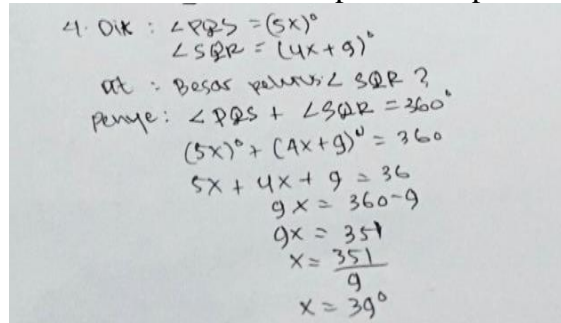 4. Dik : ∠PQS = (5x)°
∠SQR = (4x+9)°
Dit : Besar pelurus ∠ SQR ?
Penye : ∠PQS + ∠SQR = 360°
(5x)° + (4x+9)° = 360
5x + 4x + 9 = 36
9x = 360-9
9x = 351
x = 351/9
x = 39°